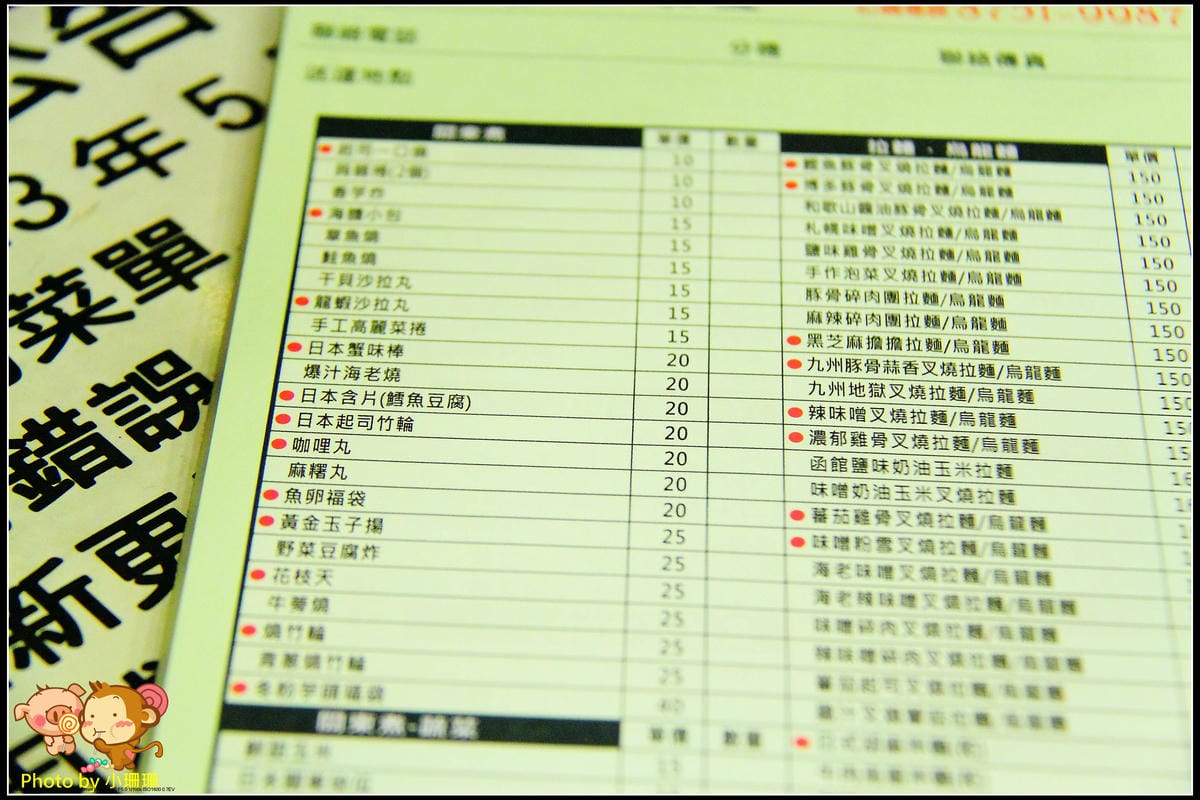 年 5
3
菜單
錯誤
新 更
8751-0087
聯絡電話 分機 聯絡傳真
送達地點
關東煮 單價 數量
起司一口燒 10
10
香芋炸 10
海膽小包 15
章魚燒 15
鮭魚燒 15
干貝沙拉丸 15
龍蝦沙拉丸 15
手工高麗菜捲 15
日本蟹味棒 20
爆汁海老燒 20
日本含片(鱈魚豆腐) 20
日本起司竹輪 20
咖哩丸 20
麻糬丸 20
魚卵福袋 20
黃金玉子揚 25
野菜豆腐炸 25
花枝天 25
牛蒡燒 25
燒竹輪 25
青蔥燒竹輪 25
40
關東煮-蔬菜 單價 數量
15
拉麵、烏龍麵 單價
鰹魚豚骨叉燒拉麵/烏龍麵 150
博多豚骨叉燒拉麵/烏龍麵 150
和歌山醬油豚骨叉燒拉麵/烏龍麵 150
札幌味噌叉燒拉麵/烏龍麵 150
鹽味雞骨叉燒拉麵/烏龍麵 150
手作泡菜叉燒拉麵/烏龍麵 150
豚骨碎肉團拉麵/烏龍麵 150
麻辣碎肉團拉麵/烏龍麵 150
黑芝麻擔擔拉麵/烏龍麵 150
九州豚骨蒜香叉燒拉麵/烏龍麵 150
九州地獄叉燒拉麵/烏龍麵 150
辣味噌叉燒拉麵/烏龍麵
濃郁雞骨叉燒拉麵/烏龍麵
函館鹽味奶油玉米拉麵
味噌奶油玉米叉燒拉麵
蕃茄雞骨叉燒拉麵/烏龍麵
味噌粉雪叉燒拉麵/烏龍麵
海老味噌叉燒拉麵/烏龍麵
海老辣味噌叉燒拉麵/烏龍麵
味噌碎肉叉燒拉麵/烏龍麵
辣味噌碎肉叉燒拉麵/烏龍麵
蕃茄起司叉燒拉麵/烏龍麵
Photo by 小珊珊